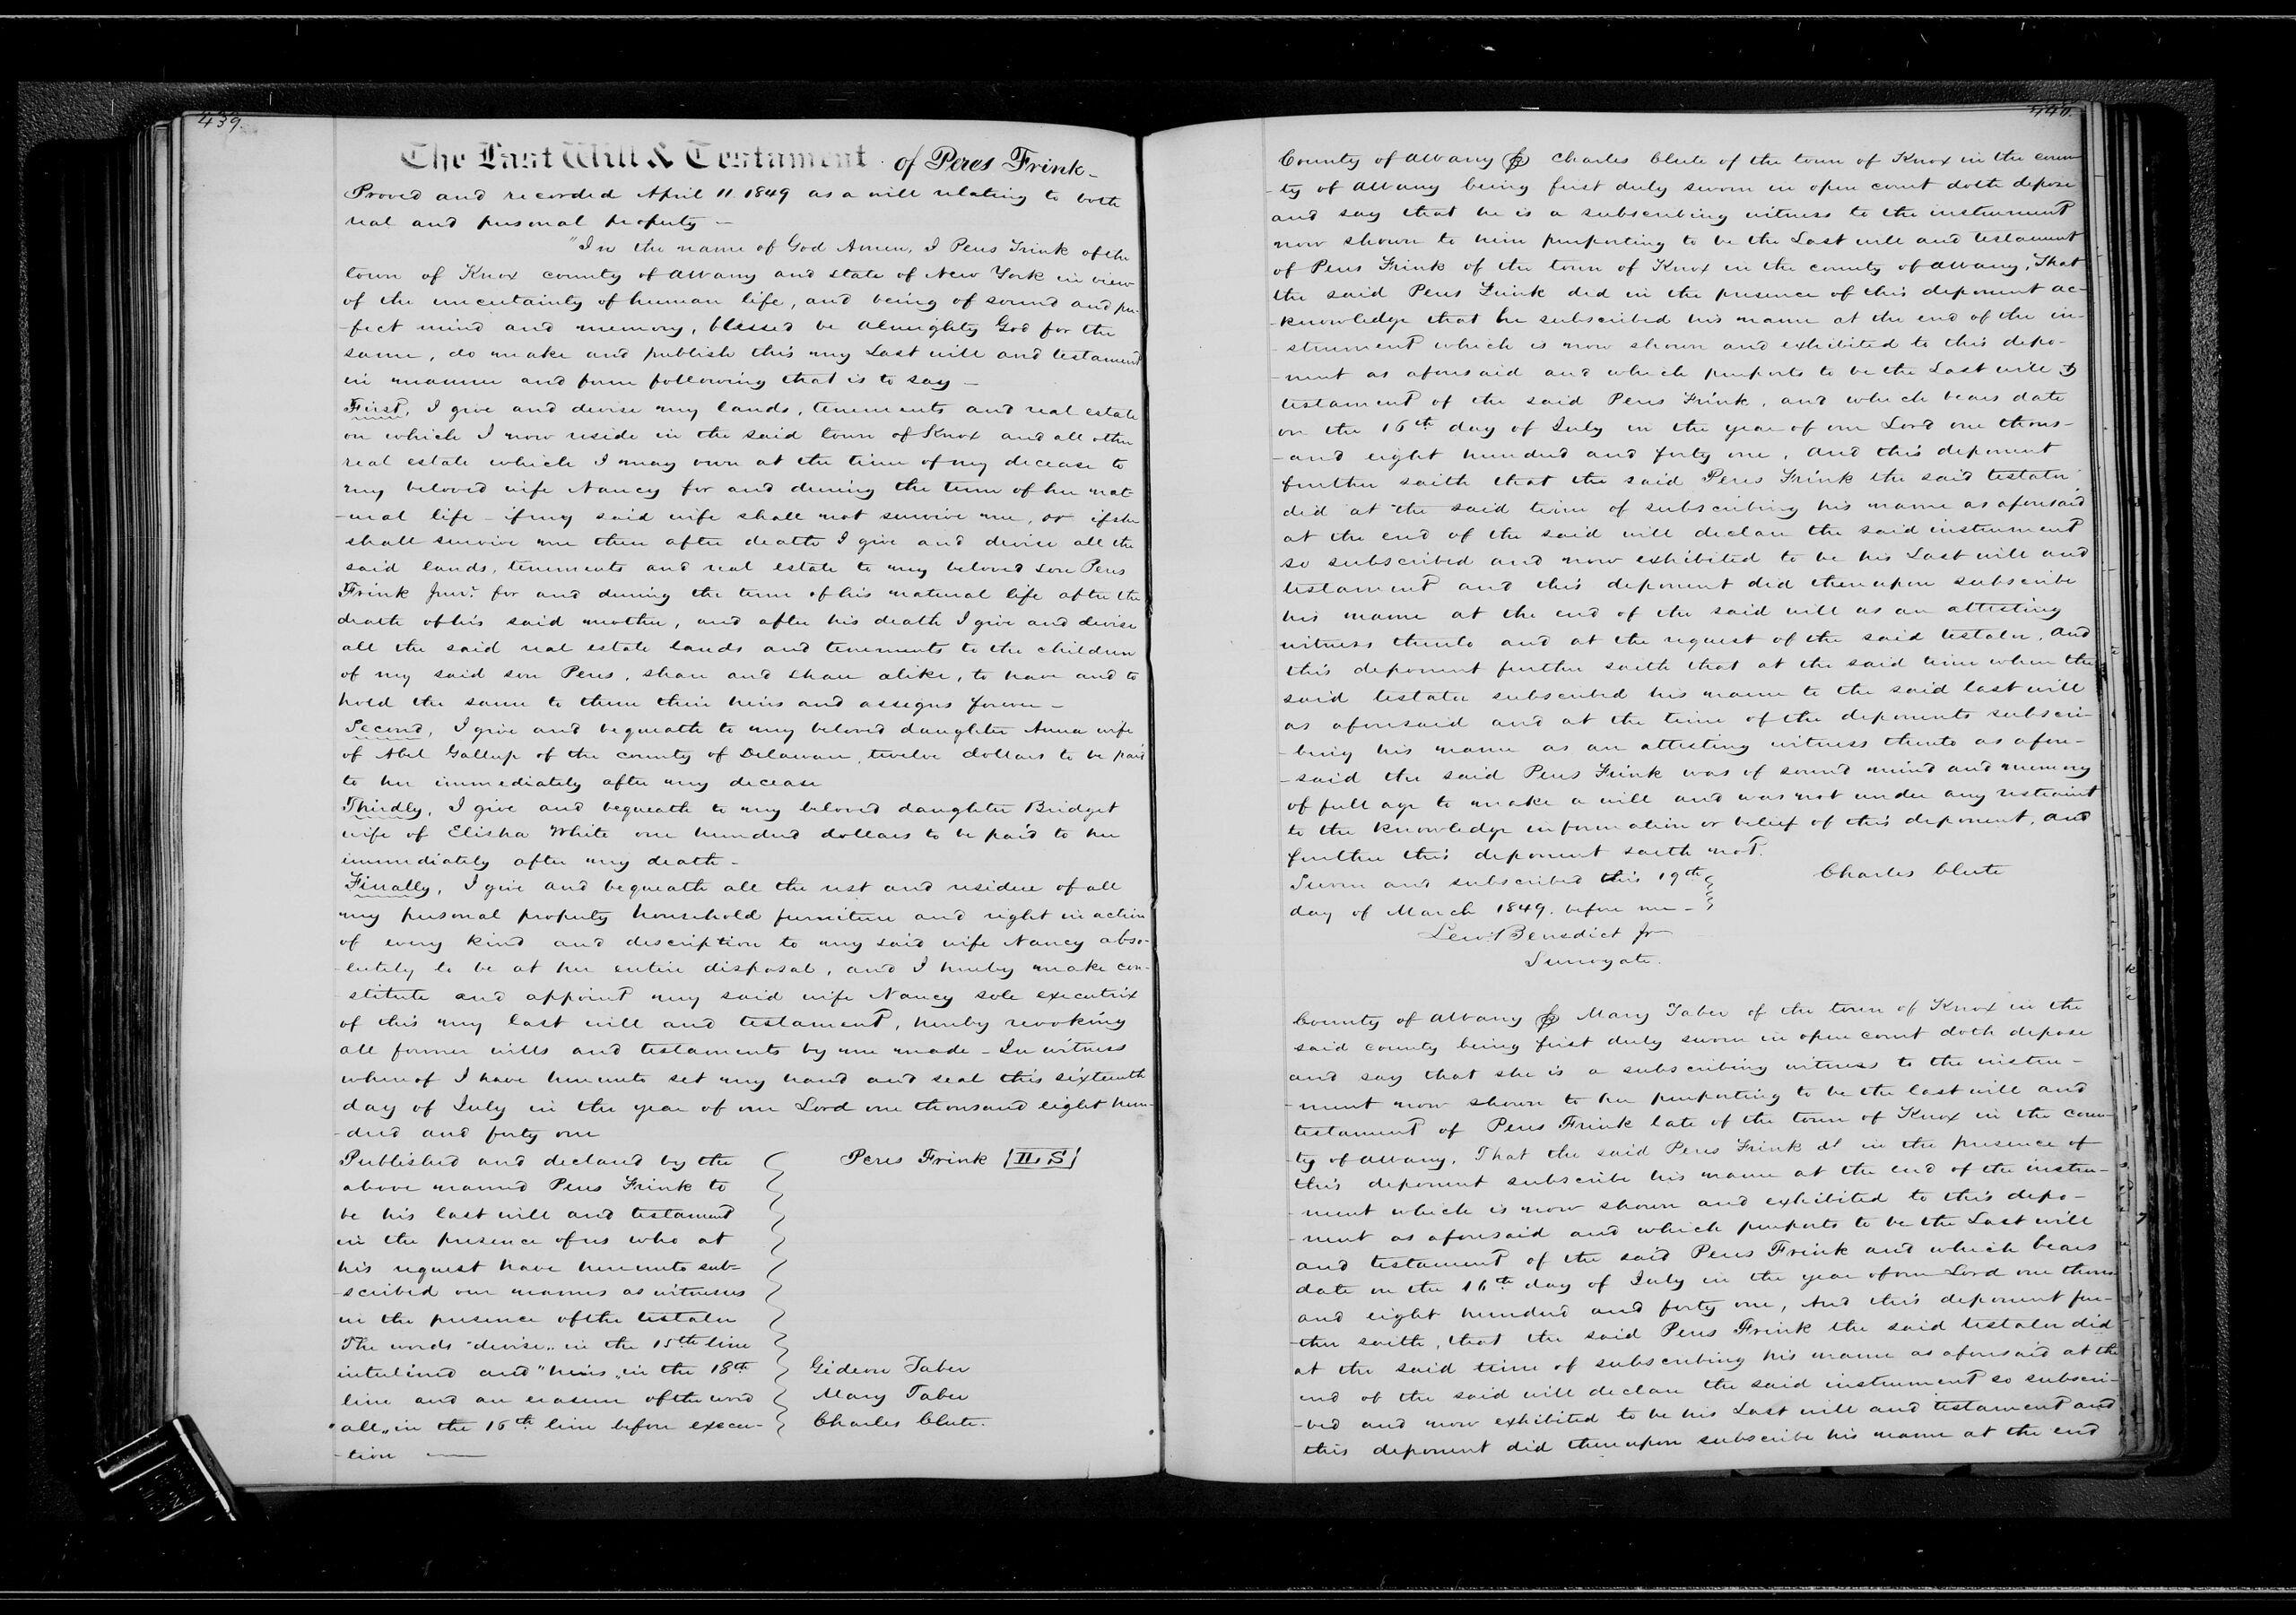 439.
The Last Will & Testament of Peres Frink-
Proved and recorded April 11. 1849 as a will relating to both
real and personal property -
"In the name of God Amen, I Peres Frink of the
town of Knox county of Albany and state of New York in view
of the uncertainty of human life, and being of sound and per-
-fect mind and memory, blessed be Almighty God for the
same, do make and publish this my Last will and testament
in manner and form following that is to say -
First, I give and devise my lands, tenements and real estate
on which I now reside in the said town of Knox and all other
real estate which I may own at the time of my decease to
my beloved wife Nancy for and during the term of her nat-
-ural life - if my said wife shall not survive me, or if she
shall survive me then after death I give and devise all the
said lands, tenements and real estate to my beloved son Peres
Frink Junr. for and during the term of his natural life after the
death of his said mother, and after his death I give and devise
all the said real estate lands and tenements to the children
of my said son Peres, share and share alike, to have and to
hold the same to them their heirs and assigns forever -
Second, I give and bequeath to my beloved daughter Anna wife
of Abel Gallup of the county of Delaware, twelve dollars to be paid
to her immediately after my decease
Thirdly, I give and bequeath to my beloved daughter Bridget
wife of Elisha White one hundred dollars to be paid to her
immediately after my death -
Finally, I give and bequeath all the rest and residue of all
my personal property household furniture and right in action
of every kind and description to my said wife Nancy abso-
-lutely to be at her entire disposal, and I hereby make con-
-stitute and appoint my said wife Nancy sole executrix
of this my last will and testament, hereby revoking
all former wills and testaments by me made - In witness
whereof I have hereunto set my hand and seal this sixteenth
day of July in the year of our Lord one thousand eight hun-
-dred and forty one
Published and declared by the
above named Peres Frink to
be his last will and testament
in the presence of us who at
his request have hereunto sub=
-scribed our names as witnesses
in the presence of the testator
The words "devise" in the 15th line
interlined and "heirs" in the 18th
line and an erasure of the word
"all" in the 16th line before execu-
-tion
Peres Frink [LS]
Gideon Taber
Mary Taber
Charles Clute.
440.
County of Albany ss Charles Clute of the town of Knox in the coun
-ty of Albany being first duly sworn in open court doth depose
and say that he is a subscribing witness to the instrument
now shown to him purporting to be the Last will and testament
of Peres Frink of the town of Knox in the county of Albany, That
the said Peres Frink did in the presence of this deponent ac-
-knowledge that he subscribed his name at the end of the in-
-strument which is now shown and exhibited to this depo-
-nent as aforesaid and which purports to be the Last will &
testament of the said Peres Frink, and which bears date
on the 16th day of July in the year of our Lord one thous-
-and eight hundred and forty one, and this deponent
further saith that the said Peres Frink the said testator
did at the said time of subscribing his name as aforesaid
at the end of the said will declare the said instrument
so subscribed and now exhibited to be his Last will and
testament and this deponent did thereupon subscribe
his name at the end of the said will as an attesting
witness thereto and at the request of the said testator, and
this deponent further saith that at the said time when the
said testator subscribed his name to the said last will
as aforesaid and at the time of the deponents subscri-
-bing his name as an attesting witness thereto as afore-
-said the said Peres Frink was of sound mind and memory
of full age to make a will and was not under any restraint
to the knowledge information or belief of this deponent, and
further this deponent saith not.
Sworn and subscribed this 19th
day of March 1849. before me -
Charles Clute
Lewis Benedict Jr
Surrogate.
County of Albany ss Mary Taber of the town of Knox in the
said county being first duly sworn in open court doth depose
and say that she is a subscribing witness to the instru-
-ment now shown to her purporting to be the last will and
testament of Peres Frink late of the town of Knox in the coun-
-ty of Albany, That the said Peres Frink d in the presence of
this deponent subscribe his name at the end of the instru-
-ment which is now shown and exhibited to this depo-
-nent as aforesaid and which purports to be the Last will
and testament of the said Peres Frink and which bears
date on the 16th day of July in the year of our Lord one thous
and eight hundred and forty one, And this deponent fur-
-ther saith, that the said Peres Frink the said testator did
at the said time of subscribing his name as aforesaid at the
end of the said will declare the said instrument so subscri-
-bed and now exhibited to be his Last will and testament and
this deponent did thereupon subscribe his name at the end